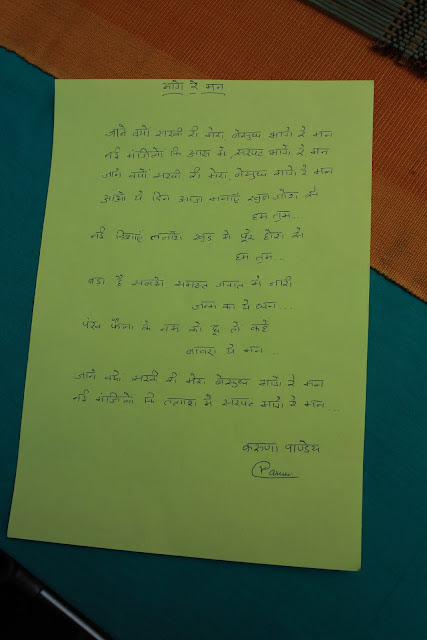 भागे रे मन
जाने क्यों सखी री मेरा, बेसुध भागे रे मन
नई मंजिलों कि आस में, सरपट भागे रे मन
जाने क्यों सखी री मेरा, बेसुध भागे रे मन
आओ ये दिन आज बनाएं जोश से
हम तुम...
नई दिशाएं तलाशें खुद में पूरे होश से
हम तुम...
बड़ा है सबसे समस्त जगत में नारी
जन्म का ये ...
पंख फैला के नभ को छू लो कहे
बावरा ये मन...
जाने क्यों सखी री मेरा बेसुध भागे रे मन
नई मंजिलों कि तलाश में सरपट भागे रे मन...
करुणा पाण्डेय